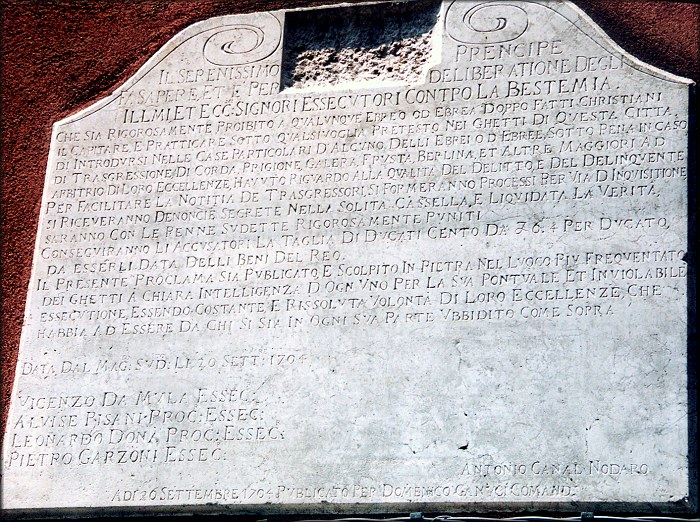 IL SERENISSIMO PRENCIPE
FA SAPERE, ET È PER DELIBERATIONE DEGLI
ILLMI ET ECC: SIGNORI ESSECVTORI CONTRO LA BESTEMIA.
CHE SIA RIGOROSAMENTE PROIBITO A QUALUNQUE EBREO OD EBREA DOPPO FATTI CHRISTIANI
IL CAPITARE, E PRATTICARE SOTTO QUALSIVOGLIA PRETESTO NEI GHETTI DI QUESTA CITTA,
DI INTRODURSI NELLE CASE PARTICOLARI D'ALCUNO DELLI EBREI OD EBREE, SOTTO PENA IN CASO
DI TRASGRESSIONE DI CORDA, PRIGIONE, GALERA, FRUSTA, BERLINA, ET ALTRE MAGGIORI AD
ARBITRIO DI LORO ECCELLENZE, HAVUTO RIGUARDO ALLA QUALITÀ DEL DELITTO, E DEL DELINQUENTE
PER FACILITARE LA NOTITIA DE TRASGRESSORI, SI FORMERANNO PROCESSI PER VIA D INQUISITIONE
SI RICEVERANNO DENONCIE SEGRETE NELLA SOLITA CASSELLA, E LIQUIDATA LA VERITÀ,
SARANNO CON LE PENNE SUDETTE RIGOROSAMENTE PUNITI
CONSEGUIRANNO LI ACCUSATORI LA TAGLIA DI DUCATI CENTO DA ƗƄ: 4 PER DUCATO,
DA ESSERLI DATA DELLI BENI DEL REO.
IL PRESENTE PROCLAMA SIA PUBLICATO, E SCOLPITO IN PIETRA NEL LUOCO PIV FREQUENTATO
DEI GHETTI À CHIARA INTELLIGENZA D OGN UNO PER LA SVA PONTVALE ET INVIOLABILE
ESSECVTIONE, ESSENDO COSTANTE, E RISSOLVTA VOLONTÀ DI LORO ECCELLENZE, CHE
HABBIA AD ESSERE DA CHI SI SIA IN OGNI SVA PARTE VBBIDITO COME SOPRA
DATA DAL MAG: SUD: LI 20 SETT: 1704
VICENZO DA MVLA ESSEC:
ALVISE PISANI PROC: ESSEC:
LEONARDO DONÀ PROC: ESSEC:
PIETRO GARZONI ESSEC:
ANTONIO CANAL NODARO
ADI 20 SETTEMBRE 1704 PUBLICATO PER DOMENICO